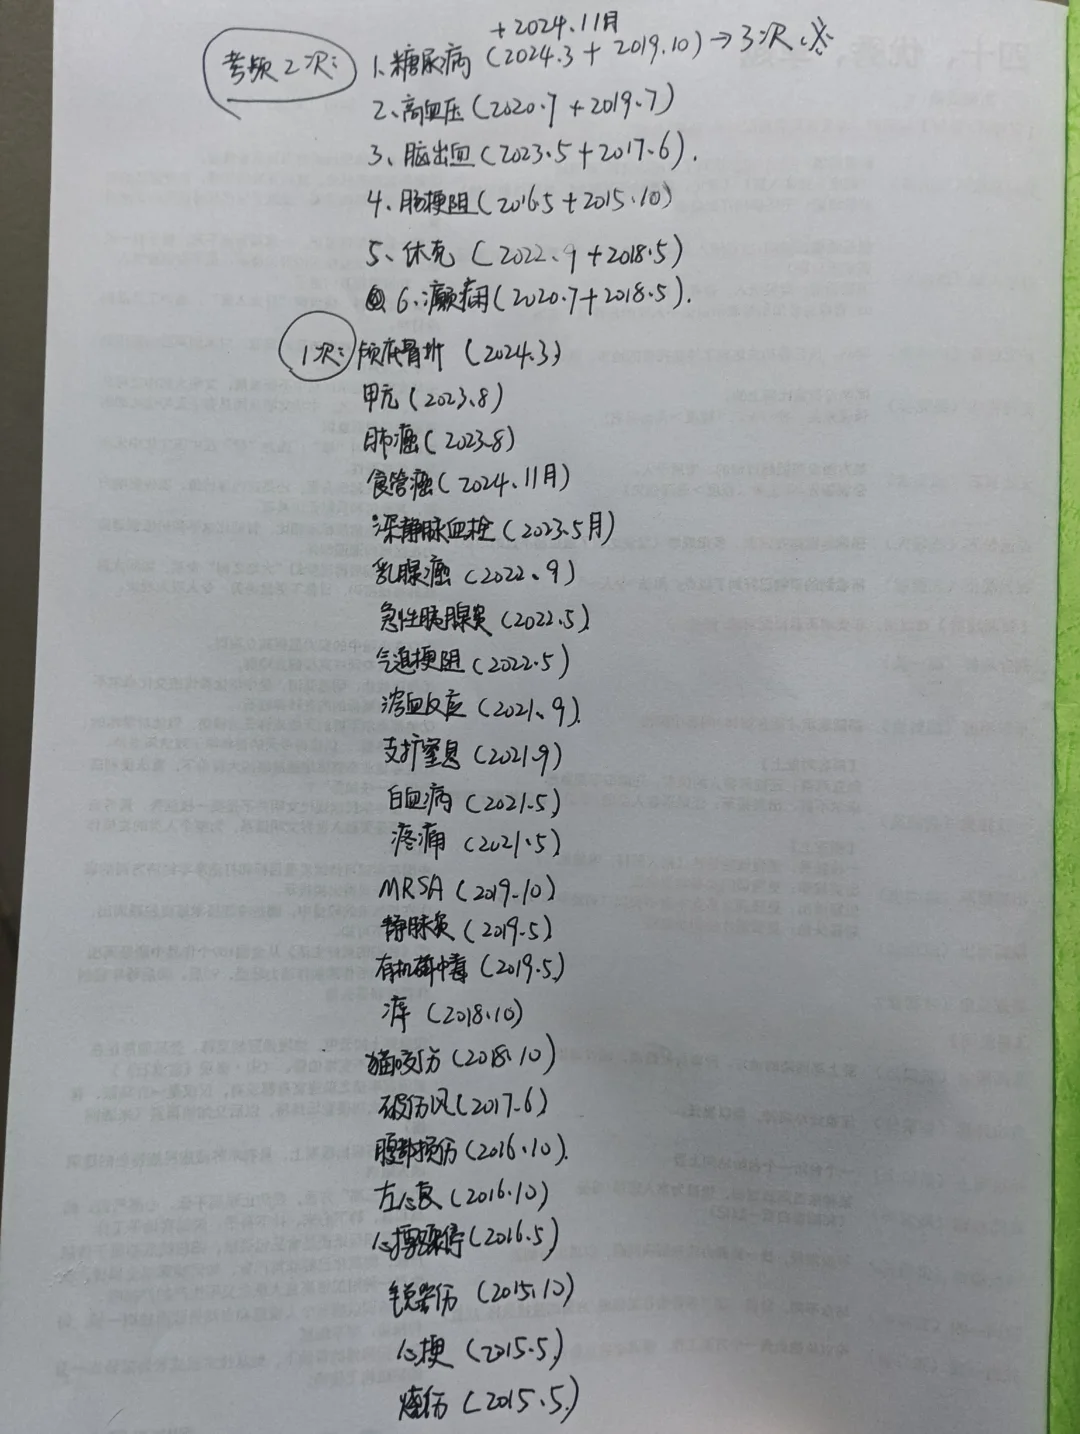 +2024.11月
考频2次: 1、糖尿病 (2024.3+2019.10) →3次
2、高血压(2020.7+2019.7)
3、脑出血(2023.5+2017.6).
4、肠梗阻(2016.5+2015.10)
5、休克 (2022.9+2018.5)
6、癫痫(2020.7+2018.5).
1次: 颅底骨折 (2024.3)
甲亢(2023.8)
肺癌(2023.8)
食管癌(2024.11月)
深静脉血栓(2023.5月)
乳腺癌(2022.9)
急性胰腺炎(2022.5)
气道梗阻(2022.5)
溶血反应(2021.9)
支扩窒息(2021.9)
白血病(2021.5)
疼痛(2021.5)
MRSA(2019.10)
静脉炎(2019.5)
有机磷中毒(2019.5)
(2018.10)
猫咬伤(2018.10)
破伤风(2017.6)
腹部损伤(2016.10).
左心衰(2016.10)
心搏骤停(2016.5)
锐器伤(2015.10)
心梗(2015.5)
烧伤(2015.5)